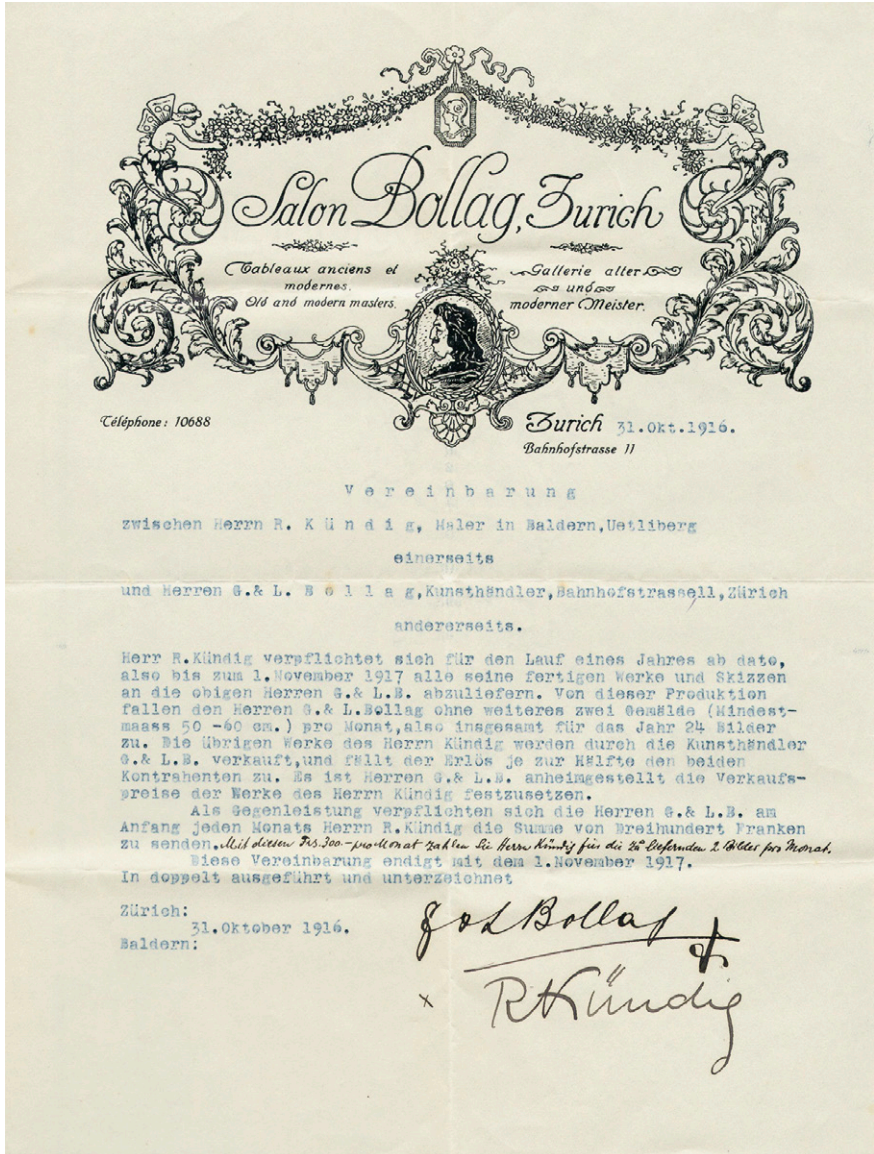 Salon Bollag, Zurich
Tableaux anciens et
modernes.
Old and modern masters.
Gallerie alter
und
moderner Meister.
Téléphone: 10688
Zurich 31.Okt.1916.
Bahnhofstrasse 11
Vereinbarung
zwischen Herrn R. Kündig, Maler in Baldern,Uetliberg
einerseits
und Herren G.& L. Bollag,Kunsthändler,Bahnhofstrasse11,Zürich
andererseits.
Herr R.Kündig verpflichtet sich für den Lauf eines Jahres ab dato,
also bis zum 1.November 1917 alle seine fertigen Werke und Skizzen
an die obigen Herren G.& L.B. abzuliefern. Von dieser Produktion
fallen den Herren G.& L.Bollag ohne weiteres zwei Gemälde (Mindest-
maass 50 -60 cm.) pro Monat,also insgesamt für das Jahr 24 Bilder
zu. Die übrigen Werke des Herrn Kündig werden durch die Kunsthändler
G.& L.B. verkauft,und fällt der Erlös je zur Hälfte den beiden
Kontrahenten zu. Es ist Herren G.& L.B. anheimgestellt die Verkaufs-
preise der Werke des Herrn Kündig festzusetzen.
Als Gegenleistung verpflichten sich die Herren G.& L.B. am
Anfang jeden Monats Herrn R.Kündig die Summe von Dreihundert Franken
zu senden. Mit diesen Frs.300.- pro Monat zahlen Sie Herrn Kündig für die zu liefernden 2 Bilder pro Monat.
Diese Vereinbarung endigt mit dem 1.November 1917.
In doppelt ausgeführt und unterzeichnet
Zürich:
31.Oktober 1916.
Baldern:
G & L Bollag
x RKündig